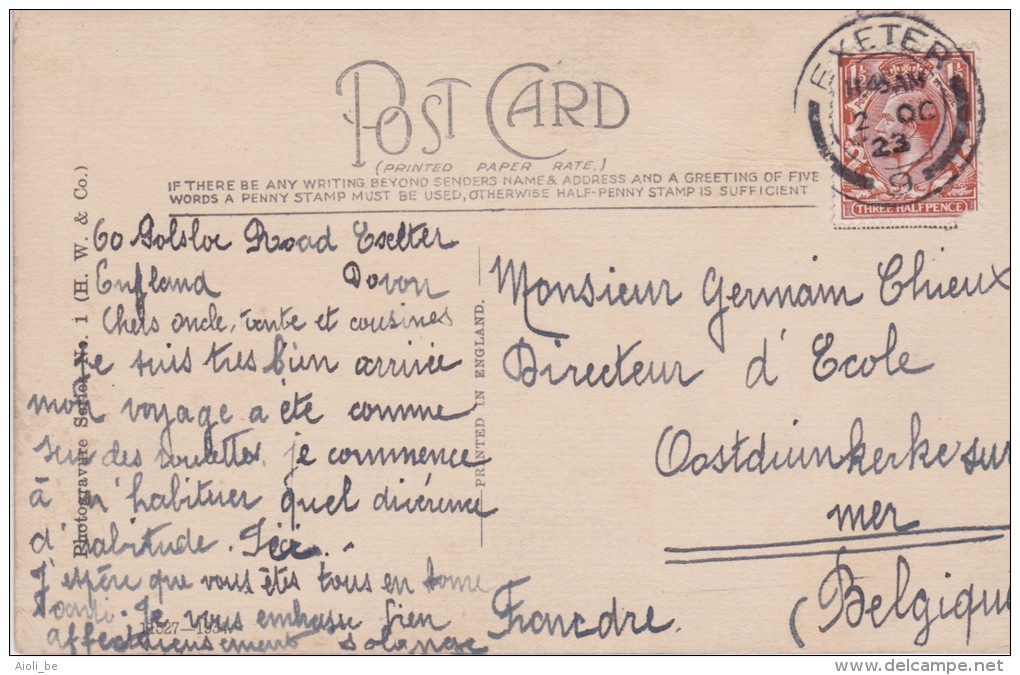 POST CARD
(PRINTED PAPER RATE.)
IF THERE BE ANY WRITING BEYOND SENDERS NAME & ADDRESS AND A GREETING OF FIVE
WORDS A PENNY STAMP MUST BE USED, OTHERWISE HALF-PENNY STAMP IS SUFFICIENT
EXETER
11.45 AM
2 OC
23
9
THREE HALFPENCE
60 Polsloe Road Exelter
England Dovon
Chers oncle, tante et cousines
Je suis très bien arrivée
mon voyage a été comme
sur des roulettes, je commence
à m'habituer quel diverence
d'habitude. Ici...-
J'espère que vous êtes tous en bonne
santé. Je vous embrasse bien
affectueusement Solange
Photogravure Series No. 1 (H. W. & Co.)
11527—1934.
PRINTED IN ENGLAND.
Monsieur Germain Chieux
Directeur d'Ecole
Oostduinkerke sur
mer
(Belgique
Francdre.
Aioli_be
delcampe.net